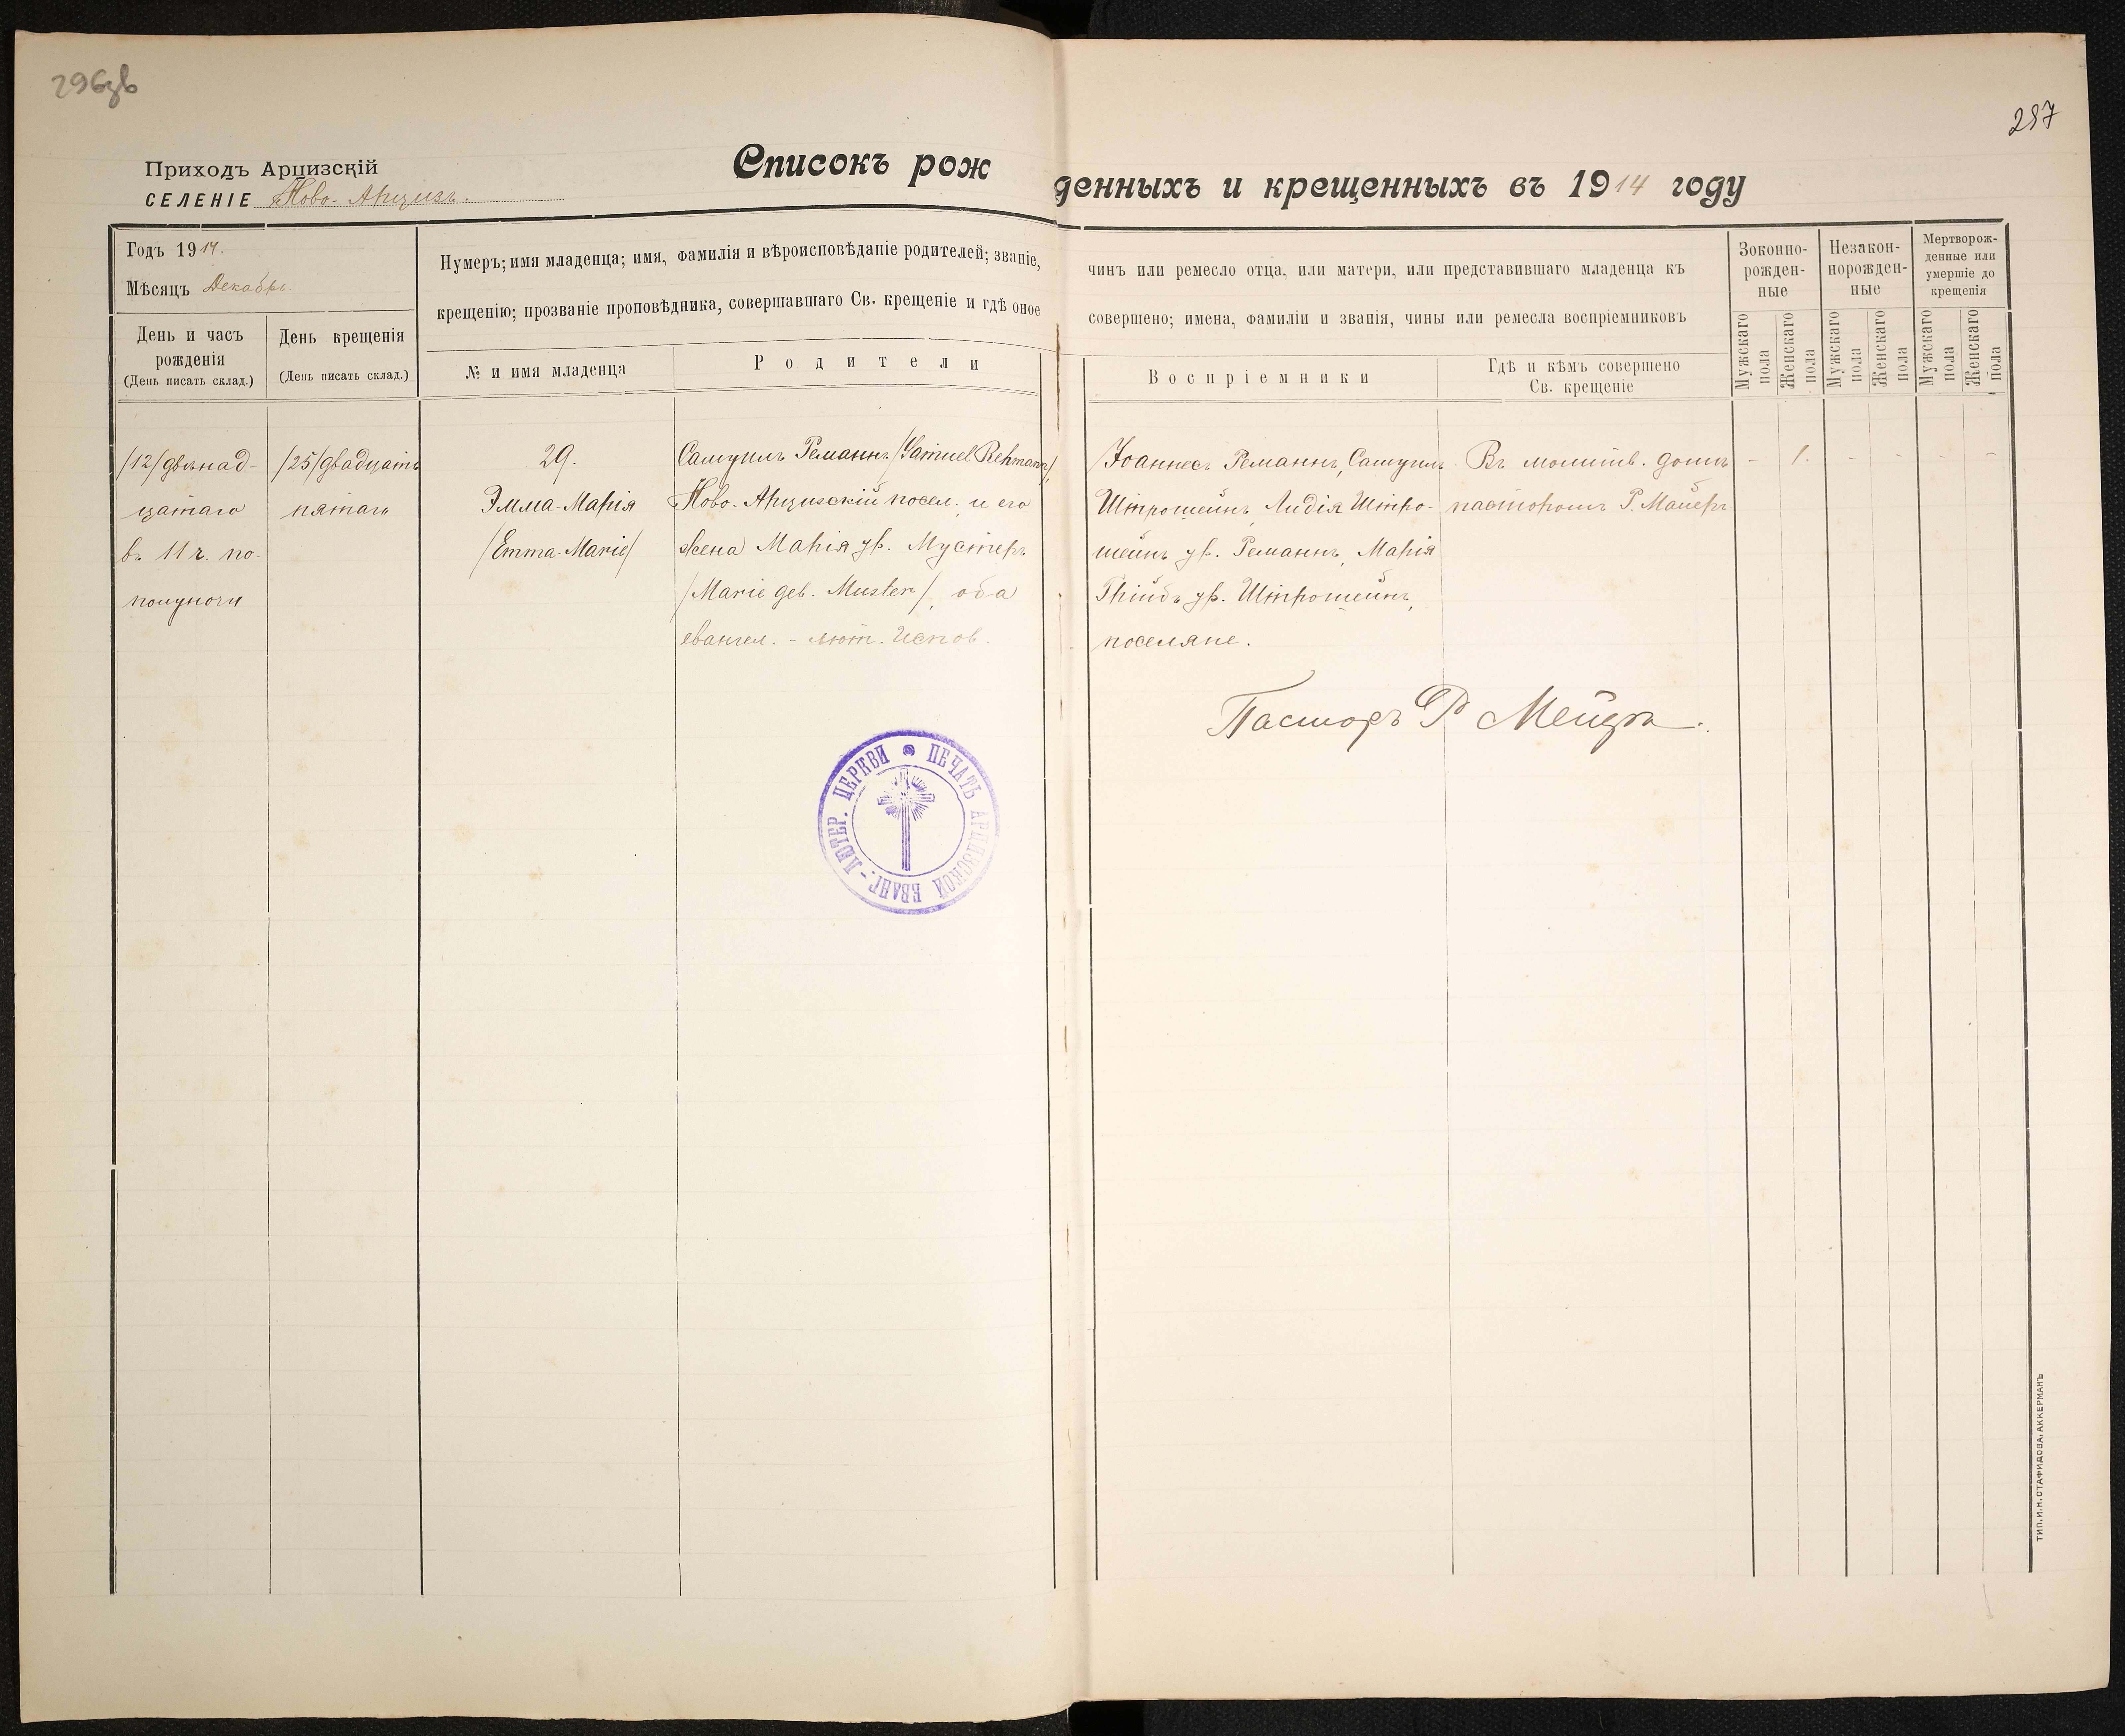 296зв
297
Приходъ Арцизскій
СЕЛЕНІЕ Ново-Арцизъ.
Списокъ рожденныхъ и крещенныхъ въ 1914 году
Годъ 1914.
Мѣсяцъ Декабрь.
День и часъ
рожденія
(День писать склад.)
День крещенія
(День писать склад.)
Нумеръ; имя младенца; имя, фамилія и вѣроисповѣданіе родителей; званіе, чинъ или ремесло отца, или матери, или представившаго младенца къ
крещенію; прозваніе проповѣдника, совершавшаго Св. крещеніе и гдѣ оное совершено; имена, фамиліи и званія, чины или ремесла воспріемниковъ
№ и имя младенца
Родители
Воспріемники
Гдѣ и кѣмъ совершено
Св. крещеніе
Зоконно-
рожден-
ные
Незакон-
норожден-
ные
Мертворож-
денные или
умершіе до
крещенія
Мужскаго
пола
Женскаго
пола
Мужскаго
пола
Женскаго
пола
Мужскаго
пола
Женскаго
пола
/12/ двѣнад-
цатаго
въ 11 ч. по-
полуночи
/25/ двадцать
пятаго
29.
Эмма-Марія
/Emma-Marie/
Самуилъ Реманнъ /Samuel Rehmann/,
Ново-Арцизскій посел. и его
жена Марія ур. Мустеръ
/Marie geb. Muster/, оба
евангел.-лют. испов.
Іоаннесъ Реманнъ, Самуилъ
Штрошейнъ, Лидія Штро-
шейнъ ур. Реманнъ, Марія
Грибъ ур. Штрошейнъ,
поселяне.
Въ молитв. домѣ
пасторомъ Р. Майеръ
- 1. - - - -
Пасторъ Р Мейеръ.
ПЕЧАТЬ АРЦИЗСКОЙ ЕВАНГ.-ЛЮТЕР. ЦЕРКВИ
ТИП. И. Н. СТАФИДОВА. АККЕРМАНЪ